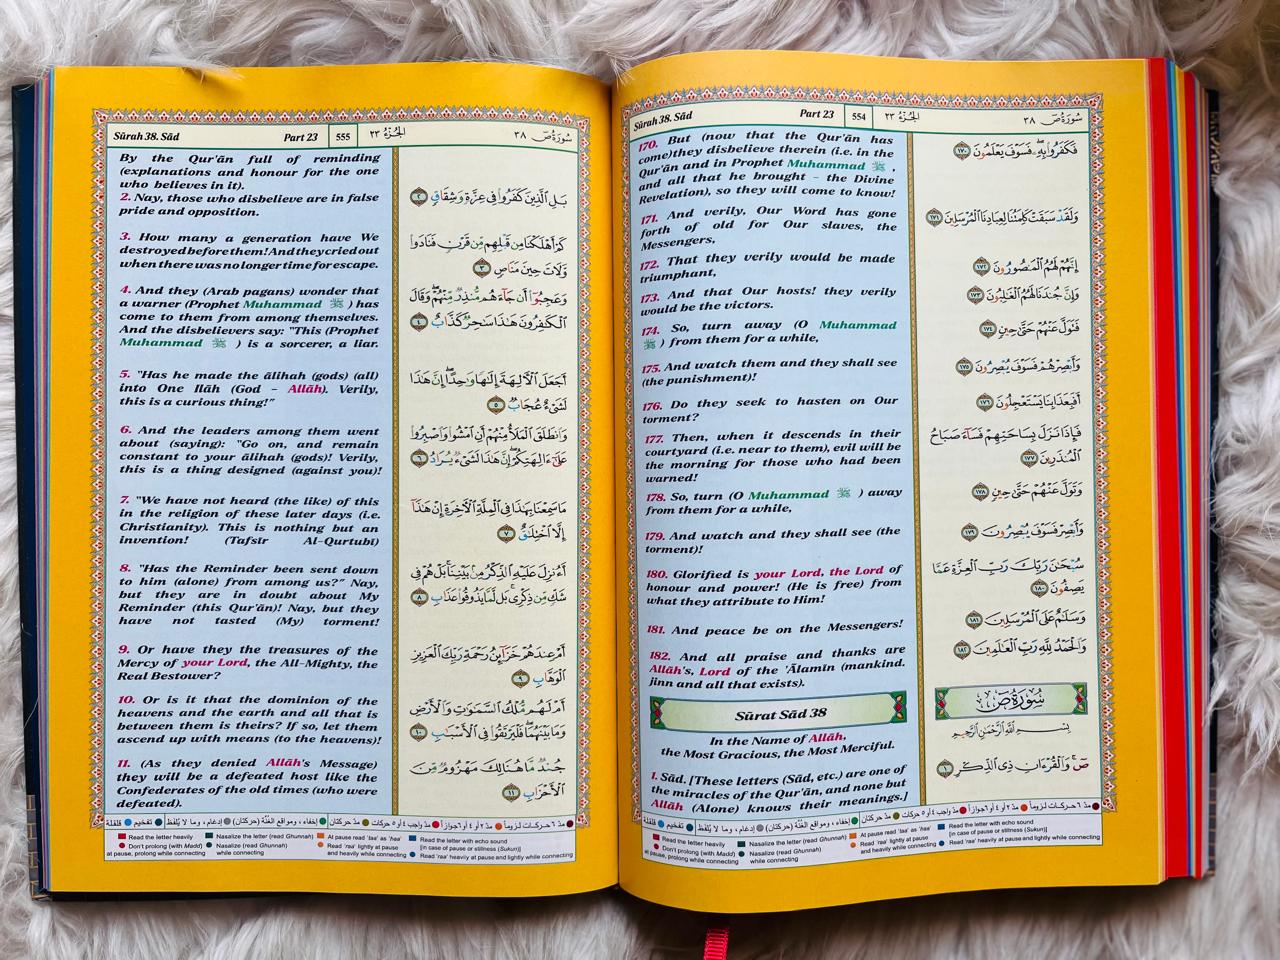 Sūrah 38. Sād
Part 23
554
الجزء ٢٣
سورة ص ٣٨
170. But (now that the Qur'ān has
come)they disbelieve therein (i.e. in the
Qur'ān and in Prophet Muhammad ﷺ ,
and all that he brought – the Divine
Revelation), so they will come to know!
171. And verily, Our Word has gone
forth of old for Our slaves, the
Messengers,
172. That they verily would be made
triumphant,
173. And that Our hosts! they verily
would be the victors.
174. So, turn away (O Muhammad
ﷺ ) from them for a while,
175. And watch them and they shall see
(the punishment)!
176. Do they seek to hasten on Our
torment?
177. Then, when it descends in their
courtyard (i.e. near to them), evil will be
the morning for those who had been
warned!
178. So, turn (O Muhammad ﷺ ) away
from them for a while,
179. And watch and they shall see (the
torment)!
180. Glorified is your Lord, the Lord of
honour and power! (He is free) from
what they attribute to Him!
181. And peace be on the Messengers!
182. And all praise and thanks are
Allāh's, Lord of the 'Ālamīn (mankind.
jinn and all that exists).
Sūrat Sād 38
In the Name of Allāh,
the Most Gracious, the Most Merciful.
1. Sād. [These letters (Sād, etc.) are one of
the miracles of the Qur'ān, and none but
Allāh (Alone) knows their meanings.]
فَكَفَرُوا۟ بِهِۦ فَسَوْفَ يَعْلَمُونَ ١٧٠
وَلَقَدْ سَبَقَتْ كَلِمَتُنَا لِعِبَادِنَا ٱلْمُرْسَلِينَ ١٧١
إِنَّهُمْ لَهُمُ ٱلْمَنصُورُونَ ١٧٢
وَإِنَّ جُندَنَا لَهُمُ ٱلْغَـٰلِبُونَ ١٧٣
فَتَوَلَّ عَنْهُمْ حَتَّىٰ حِينٍ ١٧٤
وَأَبْصِرْهُمْ فَسَوْفَ يُبْصِرُونَ ١٧٥
أَفَبِعَذَابِنَا يَسْتَعْجِلُونَ ١٧٦
فَإِذَا نَزَلَ بِسَاحَتِهِمْ فَسَآءَ صَبَاحُ
ٱلْمُنذَرِينَ ١٧٧
وَتَوَلَّ عَنْهُمْ حَتَّىٰ حِينٍ ١٧٨
وَأَبْصِرْ فَسَوْفَ يُبْصِرُونَ ١٧٩
سُبْحَـٰنَ رَبِّكَ رَبِّ ٱلْعِزَّةِ عَمَّا
يَصِفُونَ ١٨٠
وَسَلَـٰمٌ عَلَى ٱلْمُرْسَلِينَ ١٨١
وَٱلْحَمْدُ لِلَّهِ رَبِّ ٱلْعَـٰلَمِينَ ١٨٢
سورة ص
بِسْمِ ٱللَّهِ ٱلرَّحْمَـٰنِ ٱلرَّحِيمِ
صٓ وَٱلْقُرْءَانِ ذِى ٱلذِّكْرِ ١
مدّ ٦ حركات لزوماً مدّ ٢ أو ٤ أو ٦ جوازاً مدّ واجب ٤ أو ٥ حركات مدّ حركتان إخفاء، ومواقع الغُنَّة (حركتان) إدغام، وما لا يُلفَظ تفخيم قلقلة
Read the letter heavily
Don't prolong (with Madd)
at pause, prolong while connecting
Nasalize the letter (read Ghunnah)
Nasalize (read Ghunnah)
while connecting
At pause read 'taa' as 'haa'
Read 'raa' lightly at pause
and heavily while connecting
Read the letter with echo sound
[in case of pause or stillness (Sukun)]
Read 'raa' heavily at pause and lightly while connecting
Sūrah 38. Sād
Part 23
555
الجزء ٢٣
سورة ص ٣٨
By the Qur'ān full of reminding
(explanations and honour for the one
who believes in it).
2. Nay, those who disbelieve are in false
pride and opposition.
3. How many a generation have We
destroyed before them! And they cried out
when there was no longer time for escape.
4. And they (Arab pagans) wonder that
a warner (Prophet Muhammad ﷺ ) has
come to them from among themselves.
And the disbelievers say: "This (Prophet
Muhammad ﷺ ) is a sorcerer, a liar.
5. "Has he made the ālihah (gods) (all)
into One Ilāh (God – Allāh). Verily,
this is a curious thing!"
6. And the leaders among them went
about (saying): "Go on, and remain
constant to your ālihah (gods)! Verily,
this is a thing designed (against you)!
7. "We have not heard (the like) of this
in the religion of these later days (i.e.
Christianity). This is nothing but an
invention! (Tafsīr Al-Qurtubī)
8. "Has the Reminder been sent down
to him (alone) from among us?" Nay,
but they are in doubt about My
Reminder (this Qur'ān)! Nay, but they
have not tasted (My) torment!
9. Or have they the treasures of the
Mercy of your Lord, the All-Mighty, the
Real Bestower?
10. Or is it that the dominion of the
heavens and the earth and all that is
between them is theirs? If so, let them
ascend up with means (to the heavens)!
11. (As they denied Allāh's Message)
they will be a defeated host like the
Confederates of the old times (who were
defeated).
بَلِ ٱلَّذِينَ كَفَرُوا۟ فِى عِزَّةٍ وَشِقَاقٍ ٢
كَمْ أَهْلَكْنَا مِن قَبْلِهِم مِّن قَرْنٍ فَنَادَوا۟
وَّلَاتَ حِينَ مَنَاصٍ ٣
وَعَجِبُوٓا۟ أَن جَآءَهُم مُّنذِرٌ مِّنْهُمْ وَقَالَ
ٱلْكَـٰفِرُونَ هَـٰذَا سَـٰحِرٌ كَذَّابٌ ٤
أَجَعَلَ ٱلْـَٔالِهَةَ إِلَـٰهًا وَٰحِدًا إِنَّ هَـٰذَا
لَشَىْءٌ عُجَابٌ ٥
وَٱنطَلَقَ ٱلْمَلَأُ مِنْهُمْ أَنِ ٱمْشُوا۟ وَٱصْبِرُوا۟
عَلَىٰٓ ءَالِهَتِكُمْ إِنَّ هَـٰذَا لَشَىْءٌ يُرَادُ ٦
مَا سَمِعْنَا بِهَـٰذَا فِى ٱلْمِلَّةِ ٱلْـَٔاخِرَةِ إِنْ هَـٰذَآ
إِلَّا ٱخْتِلَـٰقٌ ٧
أَءُنزِلَ عَلَيْهِ ٱلذِّكْرُ مِنۢ بَيْنِنَا بَلْ هُمْ فِى
شَكٍّ مِّن ذِكْرِى بَل لَّمَّا يَذُوقُوا۟ عَذَابِ ٨
أَمْ عِندَهُمْ خَزَآئِنُ رَحْمَةِ رَبِّكَ ٱلْعَزِيزِ
ٱلْوَهَّابِ ٩
أَمْ لَهُم مُّلْكُ ٱلسَّمَـٰوَٰتِ وَٱلْأَرْضِ
وَمَا بَيْنَهُمَا فَلْيَرْتَقُوا۟ فِى ٱلْأَسْبَـٰبِ ١٠
جُندٌ مَّا هُنَالِكَ مَهْزُومٌ مِّنَ
ٱلْأَحْزَابِ ١١
مدّ ٦ حركات لزوماً مدّ ٢ أو ٤ أو ٦ جوازاً مدّ واجب ٤ أو ٥ حركات مدّ حركتان إخفاء، ومواقع الغُنَّة (حركتان) إدغام، وما لا يُلفَظ تفخيم قلقلة
Read the letter heavily
Don't prolong (with Madd)
at pause, prolong while connecting
Nasalize the letter (read Ghunnah)
Nasalize (read Ghunnah)
while connecting
At pause read 'taa' as 'haa'
Read 'raa' lightly at pause
and heavily while connecting
Read the letter with echo sound
[in case of pause or stillness (Sukun)]
Read 'raa' heavily at pause and lightly while connecting